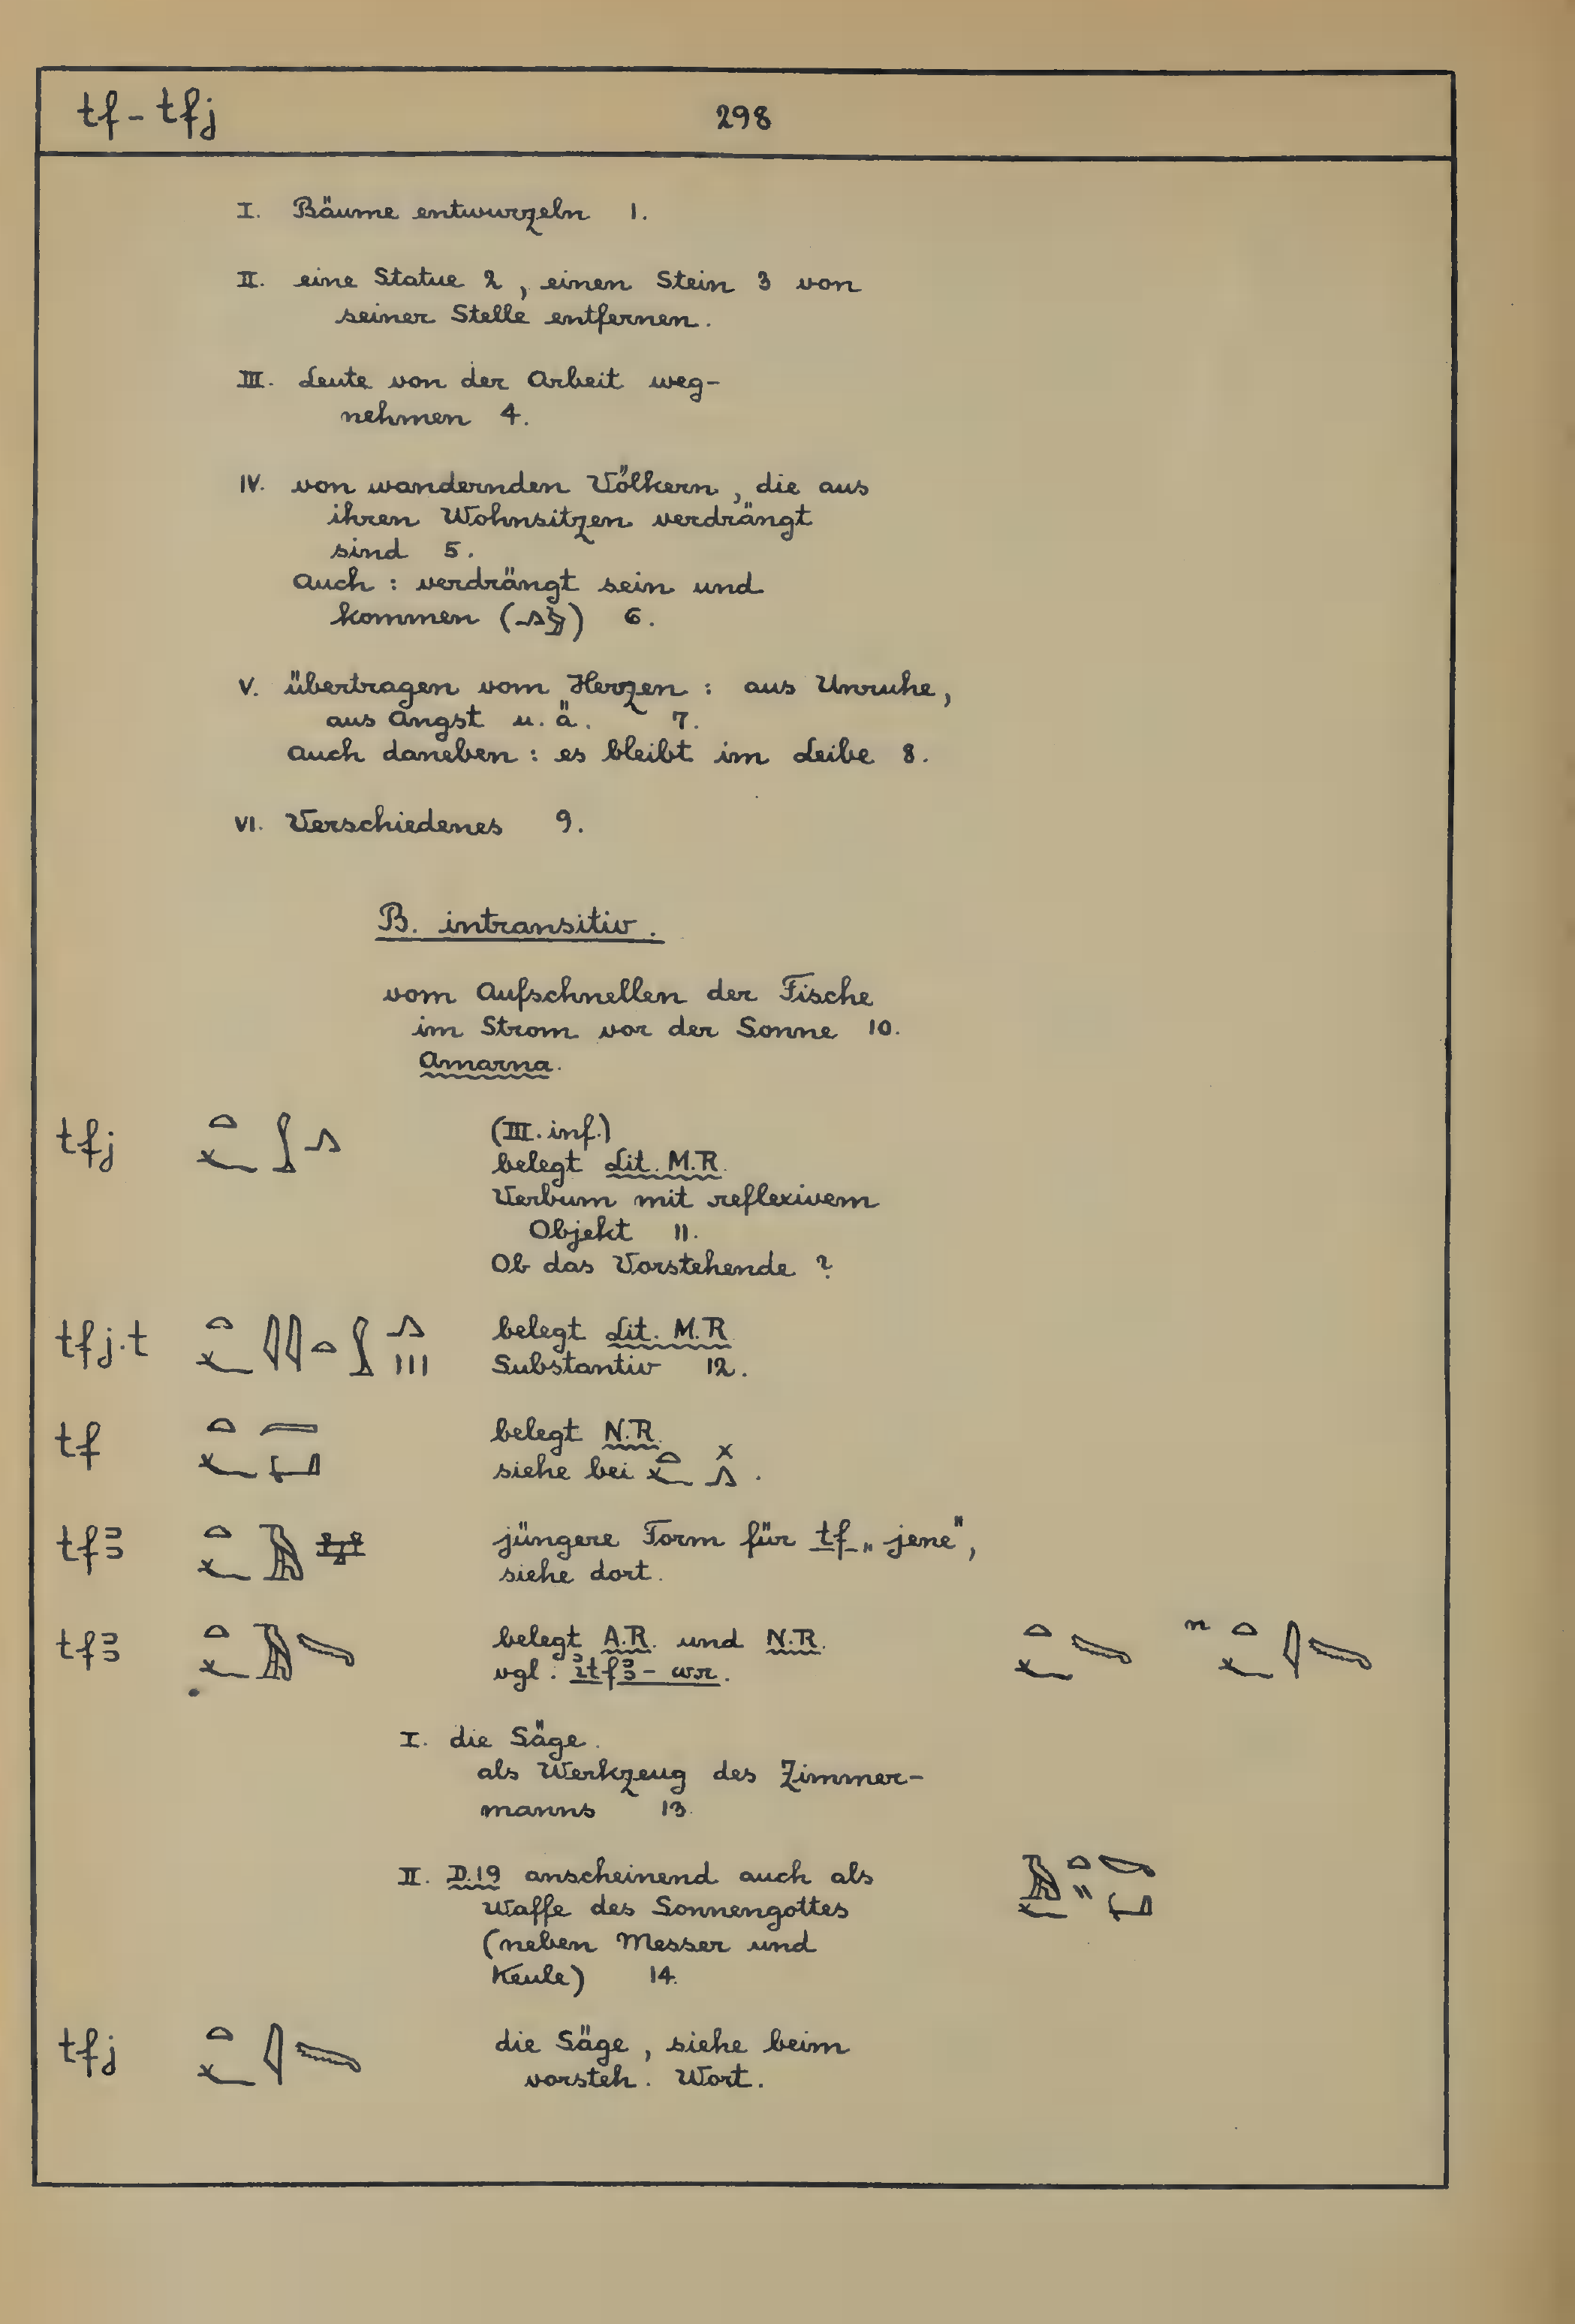 tf - tfj 298
I. Bäume entwurzeln 1.
II. eine Statue 2, einen Stein 3 von
seiner Stelle entfernen.
III. Leute von der Arbeit weg-
nehmen 4.
IV. von wandernden Völkern, die aus
ihren Wohnsitzen verdrängt
sind 5.
Auch: verdrängt sein und
kommen ( ) 6.
V. übertragen vom Herzen: aus Unruhe,
aus Angst u. ä. 7.
Auch daneben: es bleibt im Leibe 8.
VI. Verschiedenes 9.
B. intransitiv.
vom Aufschnellen der Fische
im Strom vor der Sonne 10.
Amarna.
tfj 𓏏𓆑𓂻 (III. inf.)
belegt Lit. M.R.
Verbum mit reflexivem
Objekt 11.
Ob das Vorstehende?
tfj.t belegt Lit. M.R.
Substantiv 12.
tf belegt N.R.
siehe bei 𓏏𓆑𓏴𓂻.
tfꜣ jüngere Form für tf „jene",
siehe dort.
tfꜣ belegt A.R. und N.R.
vgl. ı͗tfꜣ-wr. n
I. die Säge.
als Werkzeug des Zimmer-
manns 13.
II. D.19 anscheinend auch als
Waffe des Sonnengottes
(neben Messer und
Keule) 14.
tfj die Säge, siehe beim
vorsteh. Wort.